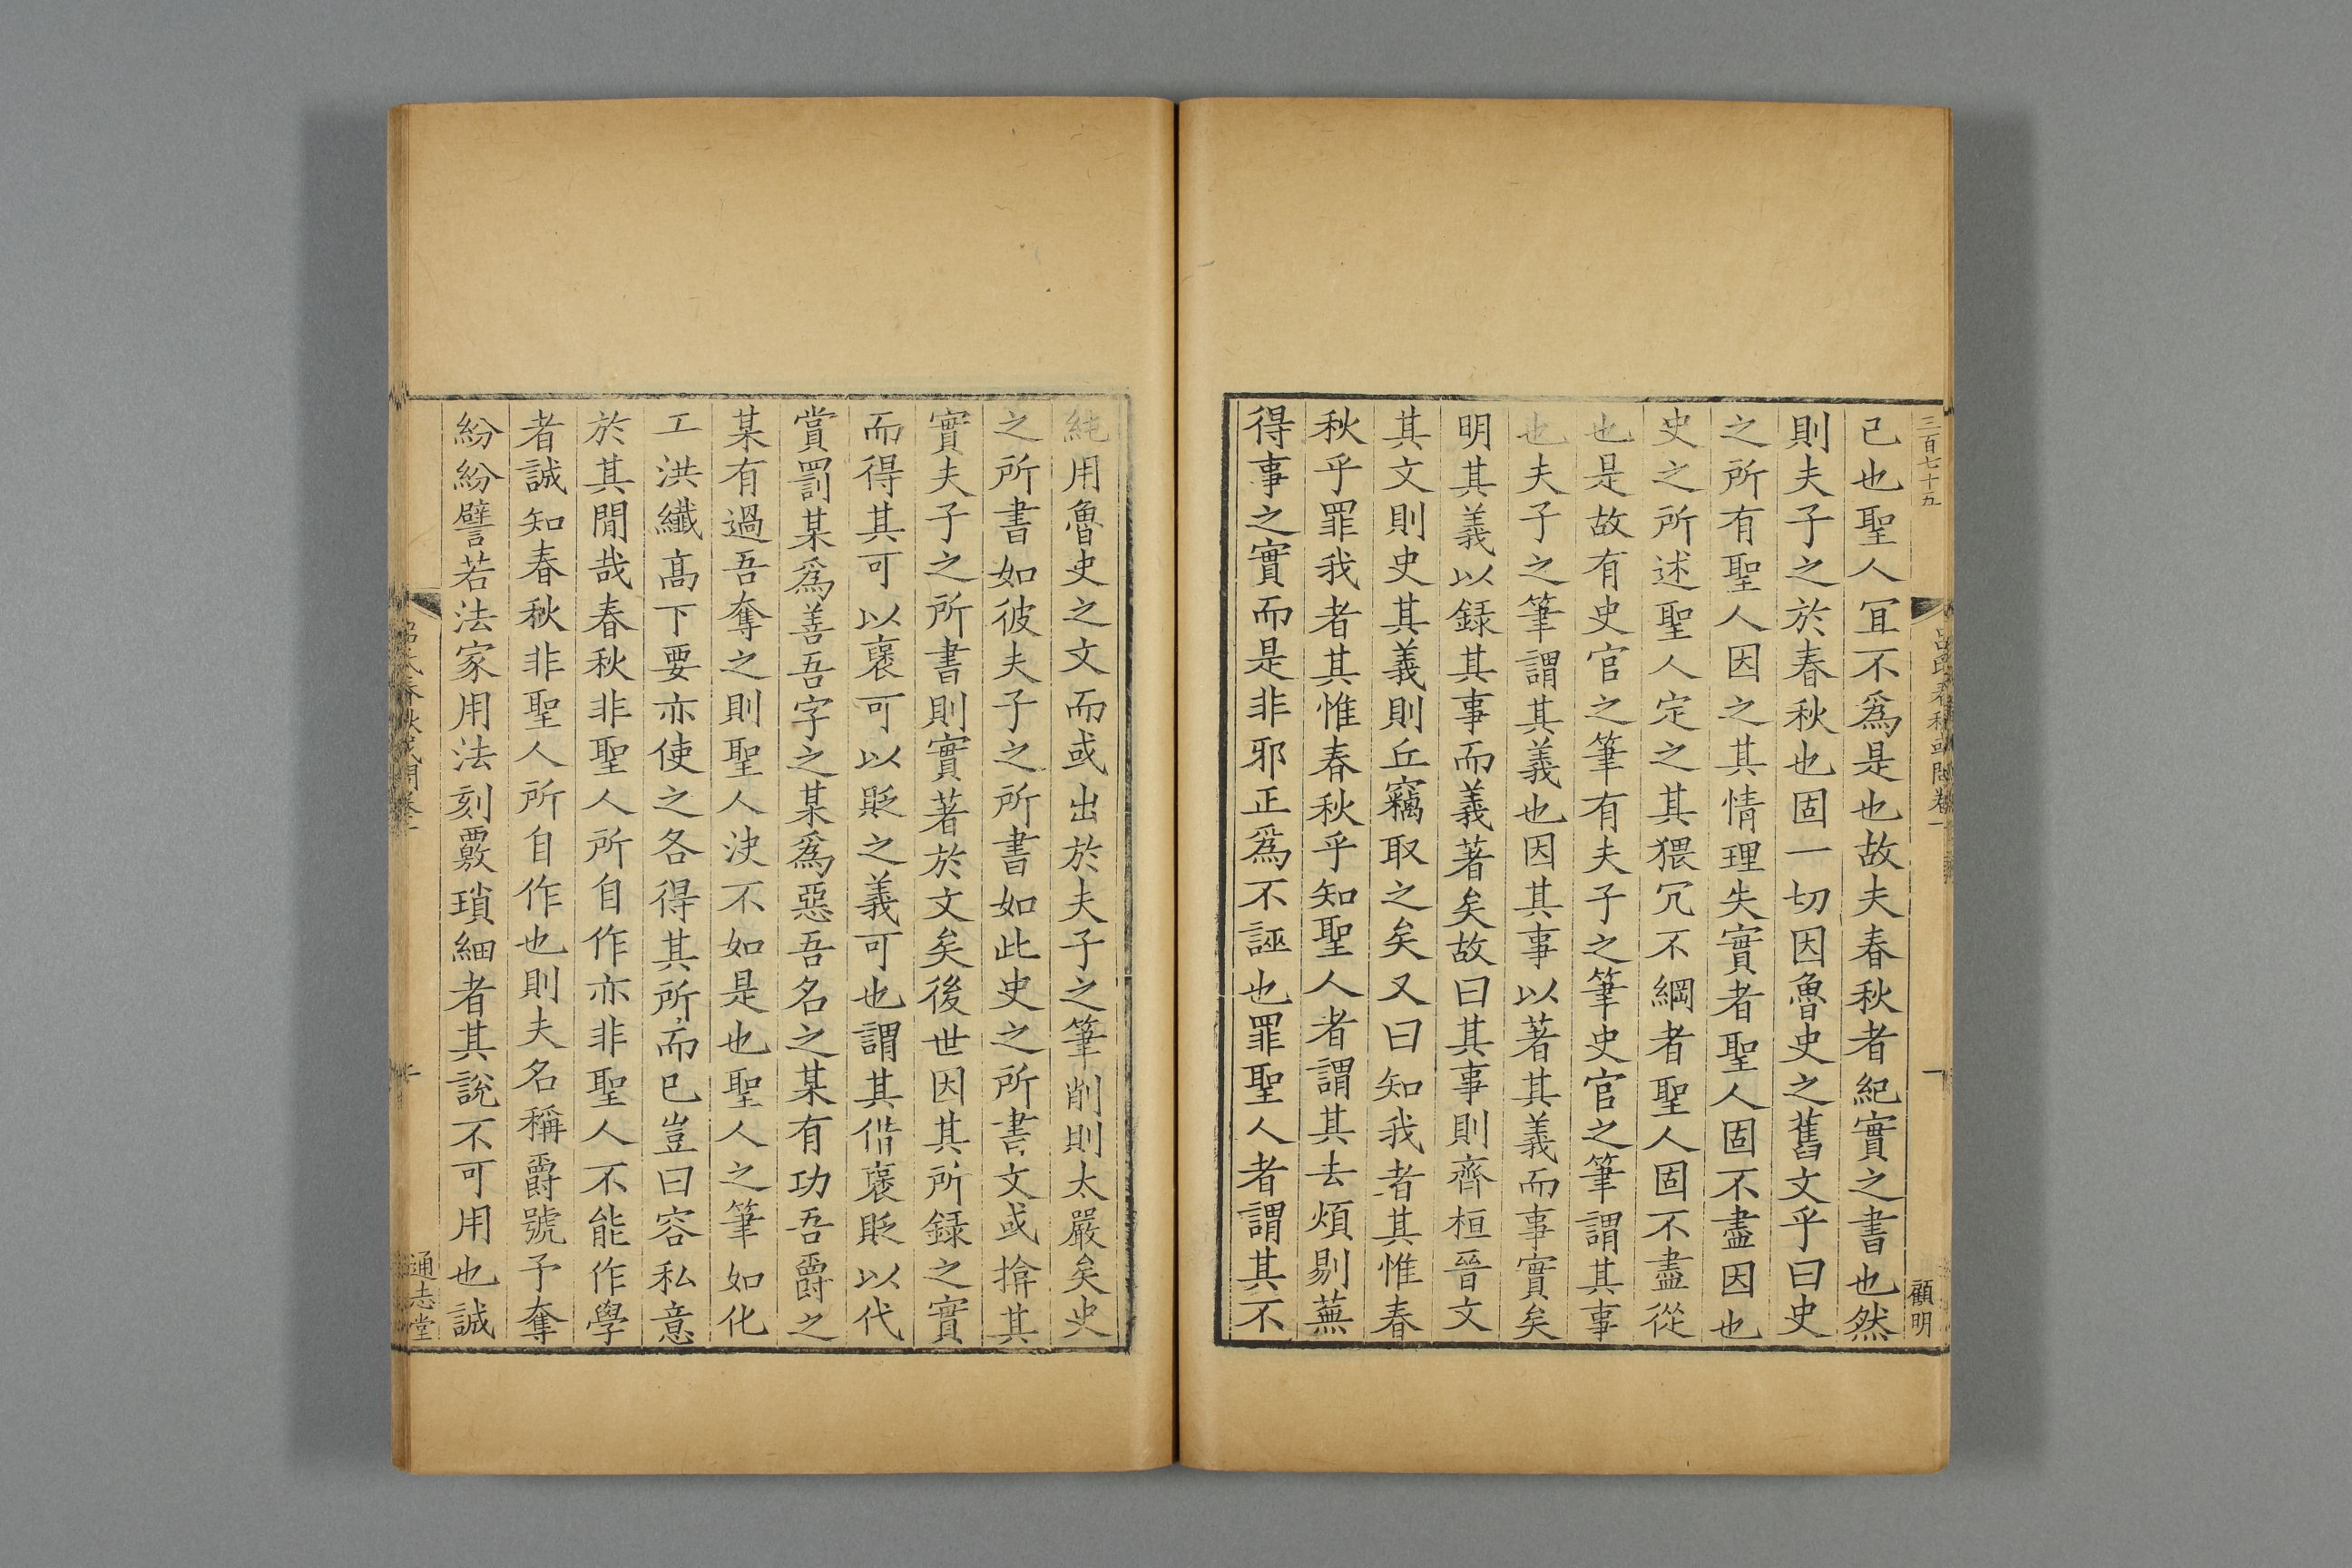 三百七十五
呂氏春秋或問卷一
一
顧明
已也聖人冝不爲是也故夫春秋者紀實之書也然
則夫子之於春秋也固一切因魯史之舊文乎曰史
之所有聖人因之其情理失實者聖人固不盡因也
史之所述聖人定之其猥冗不綱者聖人固不盡從
也是故有史官之筆有夫子之筆史官之筆謂其事
也夫子之筆謂其義也因其事以著其義而事實矣
明其義以録其事而義著矣故曰其事則齊桓晉文
其文則史其義則丘竊取之矣又曰知我者其惟春
秋乎罪我者其惟春秋乎知聖人者謂其去煩剔蕪
得事之實而是非邪正爲不誣也罪聖人者謂其不
純用魯史之文而或出於夫子之筆削則太嚴矣史
之所書如彼夫子之所書如此史之所書文或揜其
實夫子之所書則實著於文矣後世因其所録之實
而得其可以襃可以貶之義可也謂其偝襃貶以代
賞罰某爲善吾字之某爲惡吾名之某有功吾爵之
某有過吾奪之則聖人決不如是也聖人之筆如化
工洪纖高下要亦使之各得其所而已豈曰容私意
於其閒哉春秋非聖人所自作亦非聖人不能作學
者誠知春秋非聖人所自作也則夫名稱爵號予奪
紛紛譬若法家用法刻覈瑣細者其說不可用也誠
呂氏春秋或問卷一
通志堂